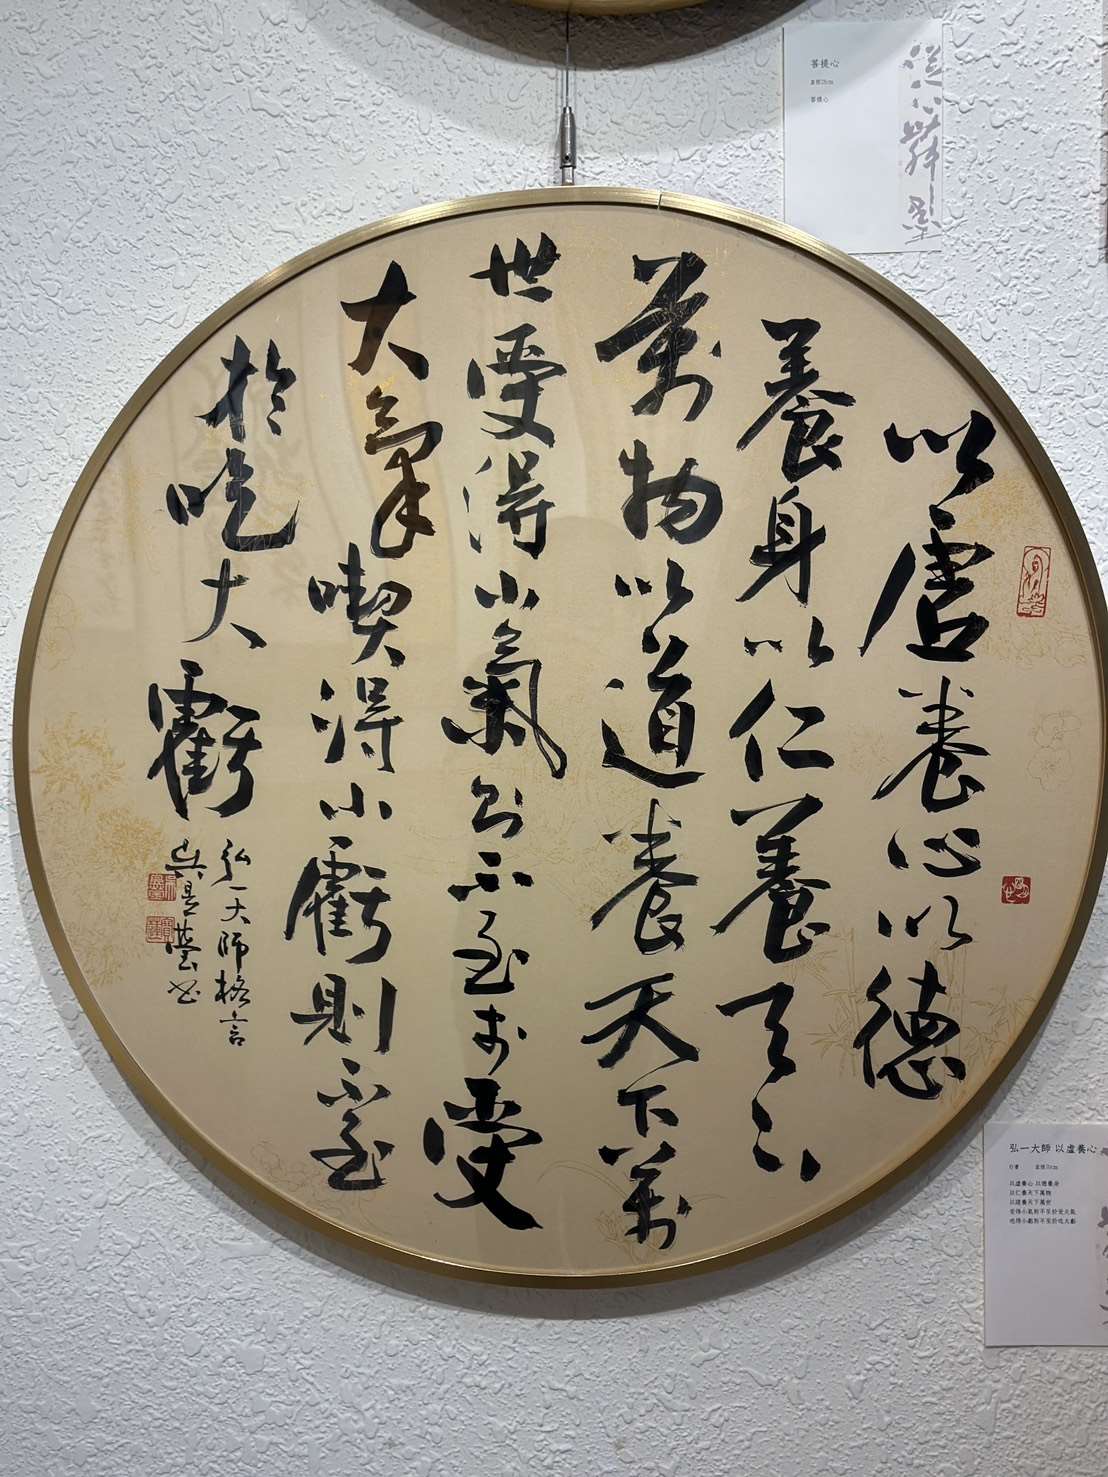 以虛養心以德
養身以仁養天下
萬物以道養天下萬
世受得小氣則不至於受
大氣喫得小虧則不至
於吃大虧
弘一大師格言
菩提心
直徑35cm
菩提心
弘一大師 以虛養心
行書
以虛養心 以德養身
以仁養天下萬物
以道養天下萬世
受得小氣則不至於受大氣
吃得小虧則不至於吃大虧